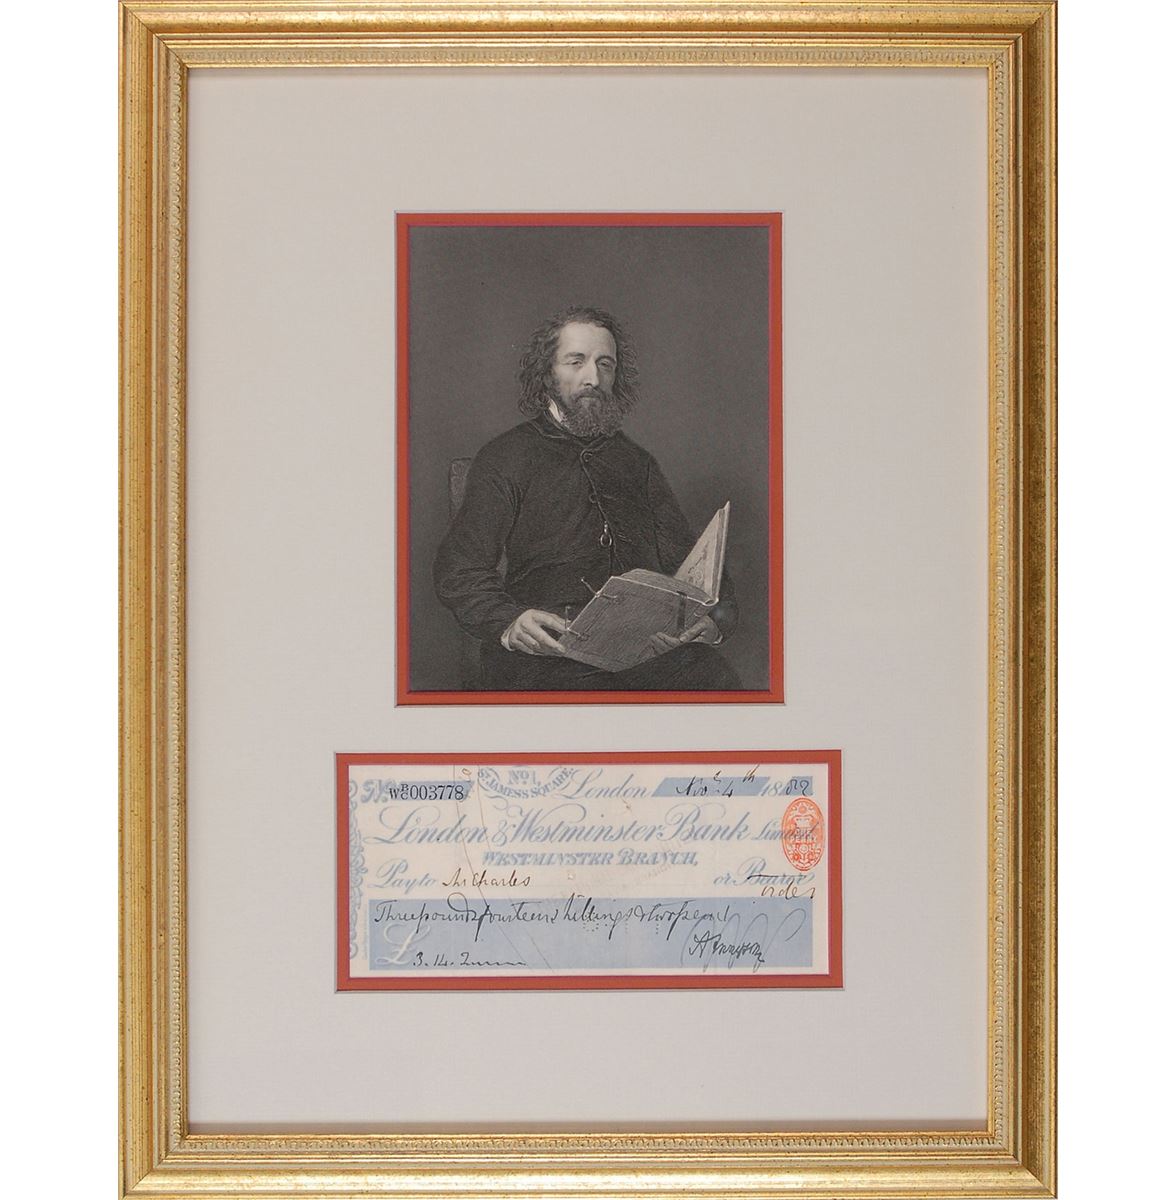 No. WBC003778
No. 1, ST. JAMES'S SQUARE.
London Nov. 4th 1882
London & Westminster Bank Limited
WESTMINSTER BRANCH,
Pay to Mr Charles or Bearer order
Three pounds fourteen shillings & two pence
£ 3.14.2
A Tennyson